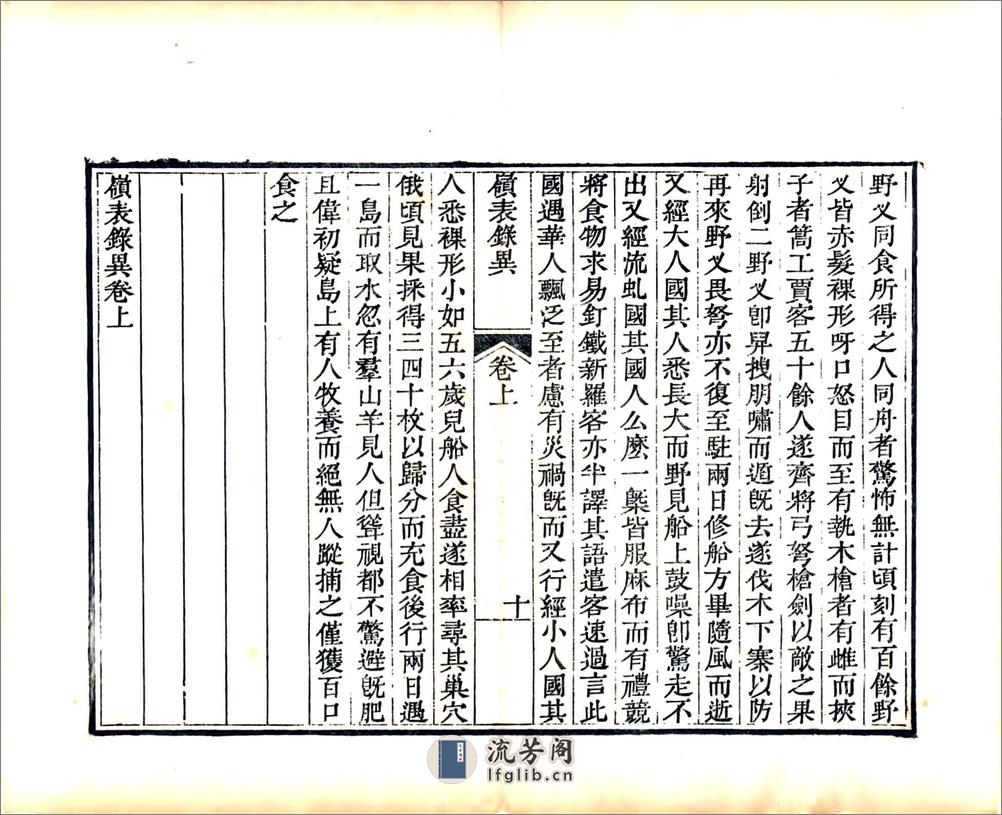 野叉同食所得之人同舟者驚怖無計頃刻有百餘野
叉皆赤髮裸形呀口怒目而至有執木槍者有雌而挾
子者篙工賈客五十餘人遂齊將弓弩槍劍以敵之果
射倒二野叉卽舁拽朋嘯而遁旣去遂伐木下寨以防
再來野叉畏弩亦不復至駐兩日修船方畢隨風而逝
又經大人國其人悉長大而野見船上鼓噪卽驚走不
出又經流虬國其國人么麽一槩皆服麻布而有禮競
將食物求易釘鐵新羅客亦半譯其語遣客速過言此
國遇華人飄泛至者慮有災禍旣而又行經小人國其
嶺表錄異
卷上
十
人悉裸形小如五六歲兒船人食盡遂相率尋其巢穴
俄頃見果採得三四十枚以歸分而充食後行兩日遇
一島而取水忽有羣山羊見人但聳視都不驚避旣肥
且偉初疑島上有人牧養而絕無人蹤捕之僅獲百口
食之
嶺表錄異卷上
流芳阁
lfglib.cn